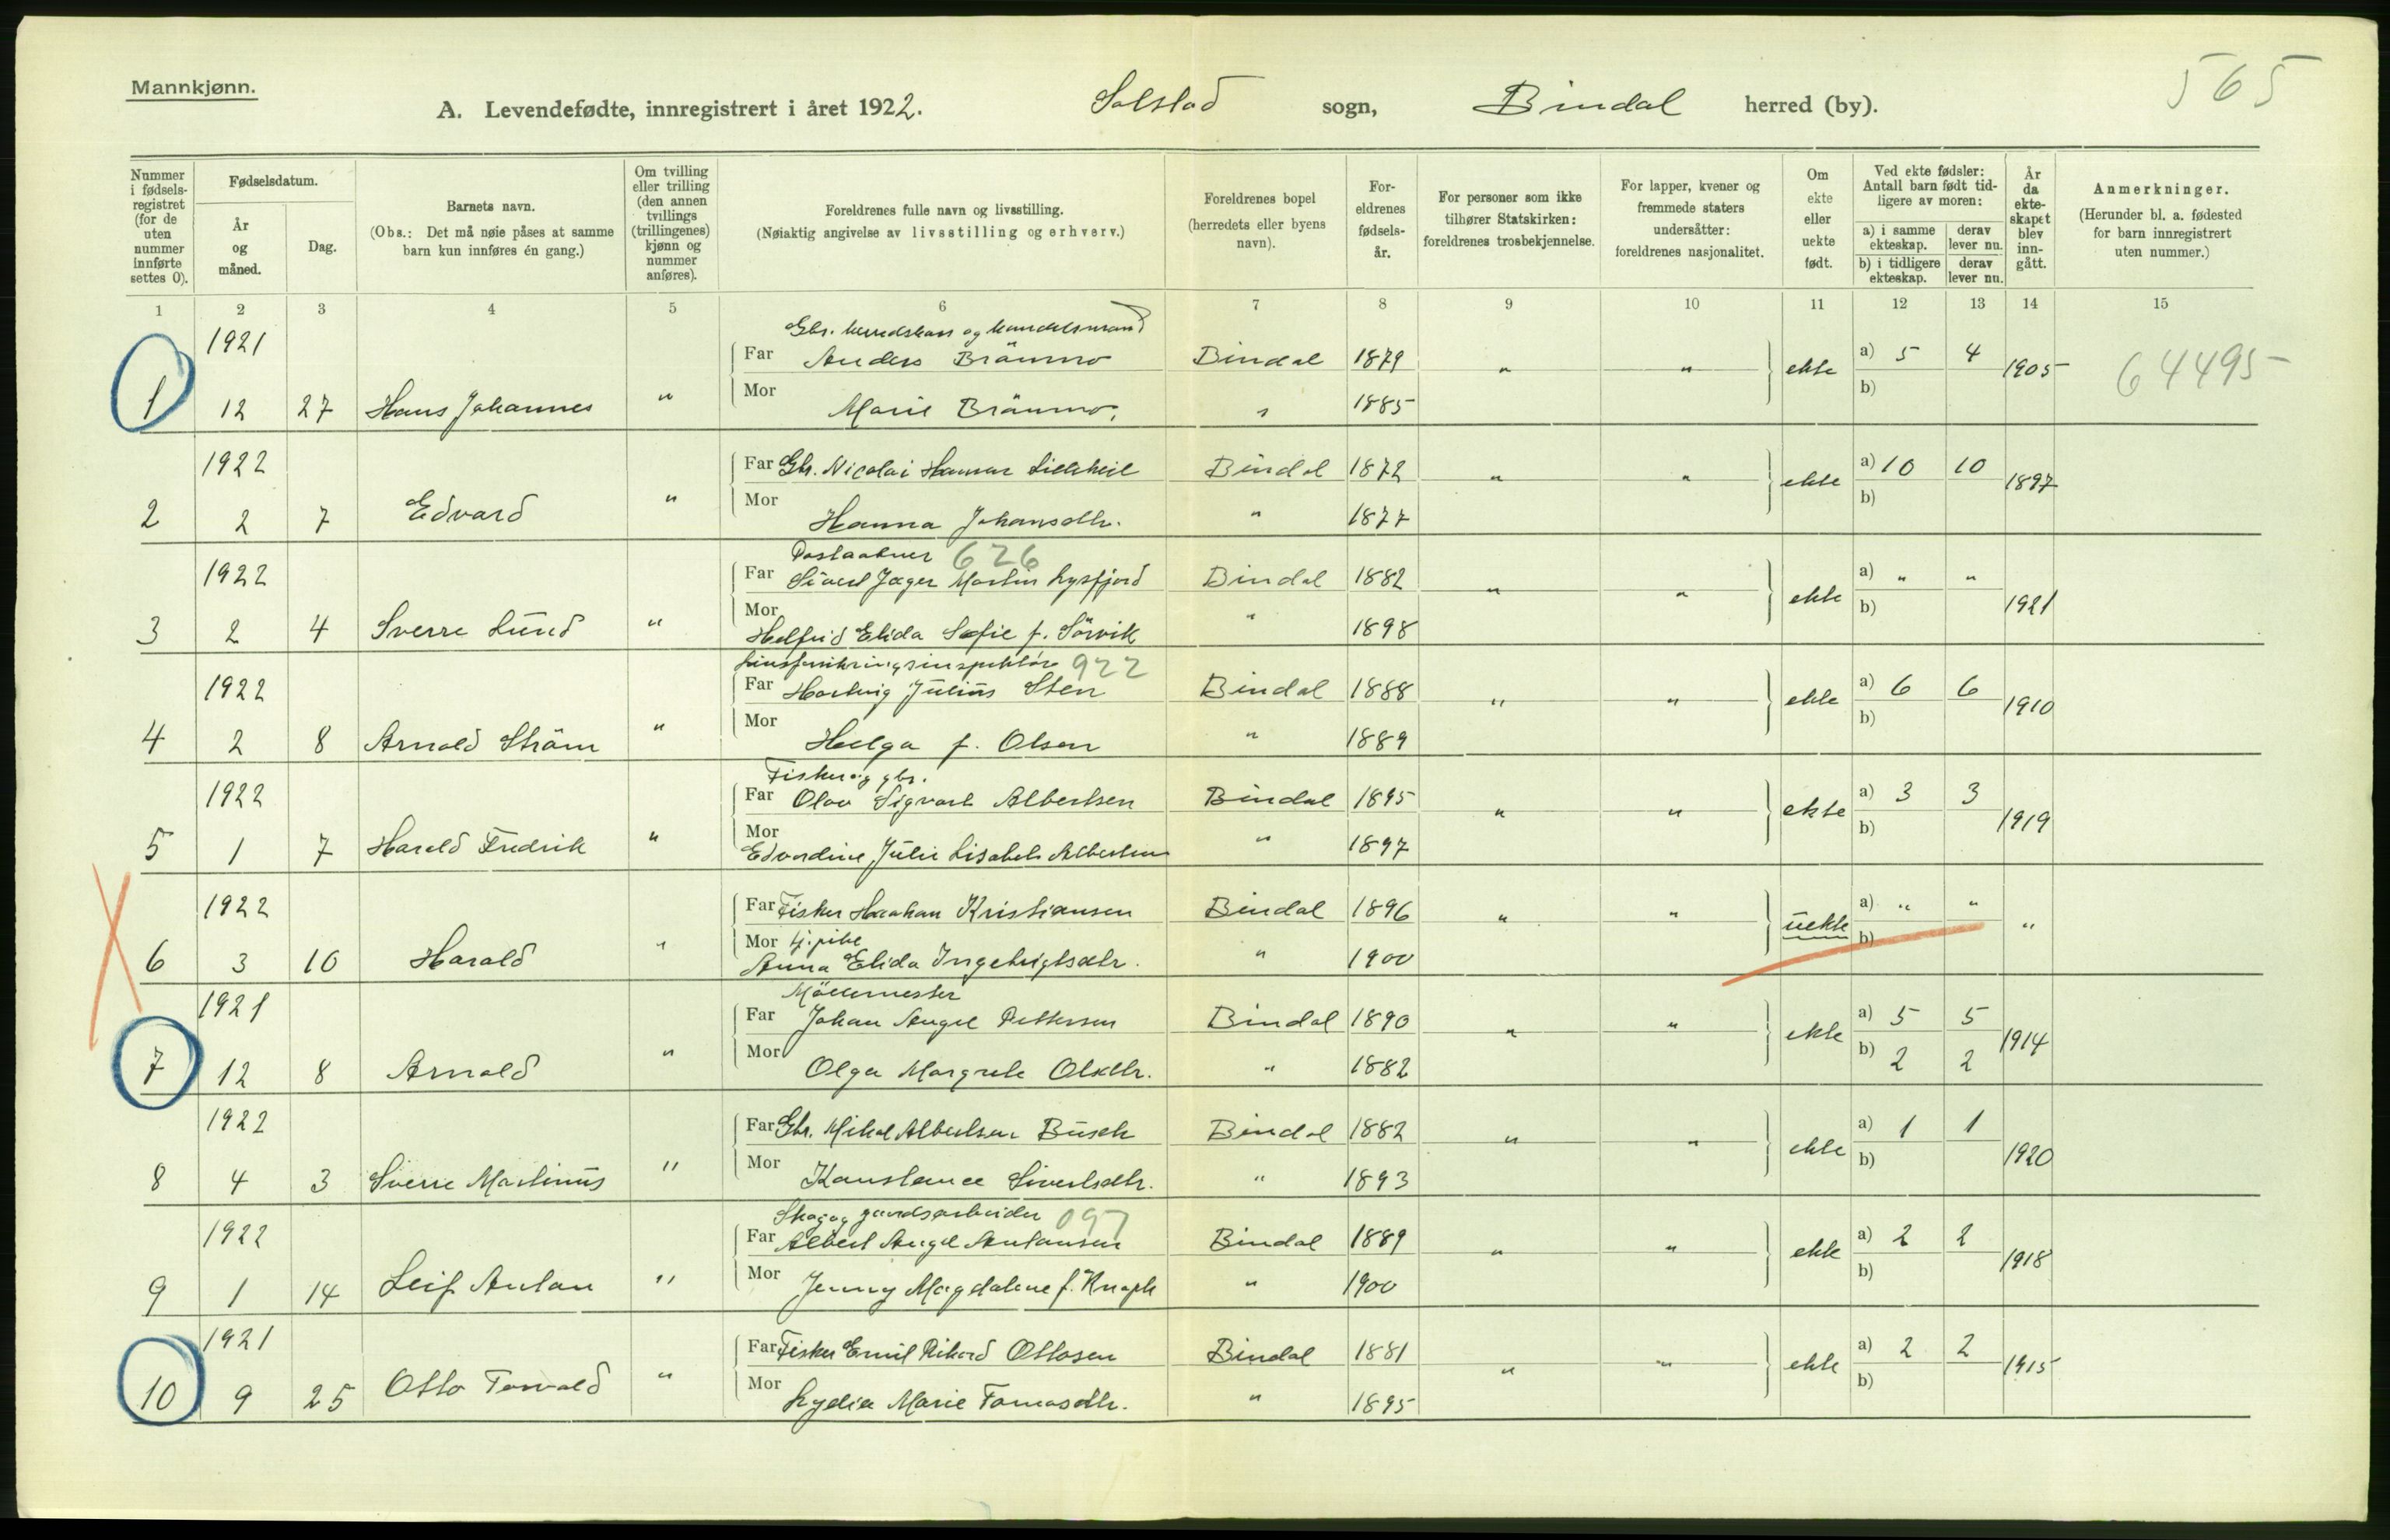 Mannkjønn.
565
A. Levendefødte, innregistrert i året 1922. Solstad sogn, Bindal herred (by).
Nummer i fødsels- registret (for de uten nummer innførte settes 0).
Fødselsdatum.
År og måned.
Dag.
Barnets navn.
(Obs.: Det må nøie påses at samme barn kun innføres én gang.)
Om tvilling eller trilling (den annen tvillings (trillingenes) kjønn og nummer anføres).
Foreldrenes fulle navn og livsstilling.
(Nøiaktig angivelse av livsstilling og erhverv.)
Foreldrenes bopel (herredets eller byens navn).
For- eldrenes fødsels- år.
For personer som ikke tilhører Statskirken: foreldrenes trosbekjennelse.
For lapper, kvener og fremmede staters undersåtter: foreldrenes nasjonalitet.
Om ekte eller uekte født.
Ved ekte fødsler: Antall barn født tid- ligere av moren:
a) i samme ekteskap. derav lever nu.
b) i tidligere ekteskap. derav lever nu.
År da ekte- skapet blev inn- gått.
Anmerkninger.
(Herunder bl. a. fødested for barn innregistrert uten nummer.)
1 2 3 4 5 6 7 8 9 10 11 12 13 14 15
Gbr. og handelsmand
1921 Far Anders Brännmo Bindal 1879 " " ekte a) 5 4 1905 64495
1 12 27 Hans Johannes " Mor Marie Brännmo, " 1885 b)
1922 Far Gbr. Nicolai Hansen Lilleheil Bindal 1872 " " ekte a) 10 10 1897
2 2 7 Edvard " Mor Hanna Johansdtr. " 1877 b)
Postaabner 626
1922 Far Sivert Jæger Martin Lysfjord Bindal 1882 " " ekte a) " " 1921
3 2 4 Sverre Lund " Mor Helfrid Elida Sofie f. Sörvik " 1898 b)
922
1922 Far Hartvig Julius Sten Bindal 1888 " " ekte a) 6 6 1910
4 2 8 Arnold Ström " Mor Helga f. Olsen " 1889 b)
Fisker og gbr.
1922 Far Olav Sigvart Albertsen Bindal 1895 " " ekte a) 3 3 1919
5 1 7 Harald Fredrik " Mor Edvardine Julie Lisabet Albertsen " 1897 b)
1922 Far Fisker Haakon Kristiansen Bindal 1896 " " uekte a) " " "
6 3 10 Harald " Mor tj.pike Anna Elida Ingebrigtsdtr. " 1900 b)
Möllemester
1921 Far Johan Angel Pettersen Bindal 1890 " " ekte a) 5 5 1914
7 12 8 Arnold " Mor Olga Margrete Olsdtr. " 1882 b) 2 2
1922 Far Gbr. Mikal Albertsen Busch Bindal 1882 " " ekte a) 1 1 1920
8 4 3 Sverre Martinus " Mor Konstance Sivertsdtr. " 1893 b)
Skog og gaardsarbeider 097
1922 Far Albert Angel Antonsen Bindal 1889 " " ekte a) 2 2 1918
9 1 14 Leif Anton " Mor Jenny Magdalene f. Knoph " 1900 b)
1921 Far Fisker Emil Rikard Ottosen Bindal 1881 " " ekte a) 2 2 1915
10 9 25 Otto Torvald " Mor Lydia Marie Tomasdtr. " 1895 b)